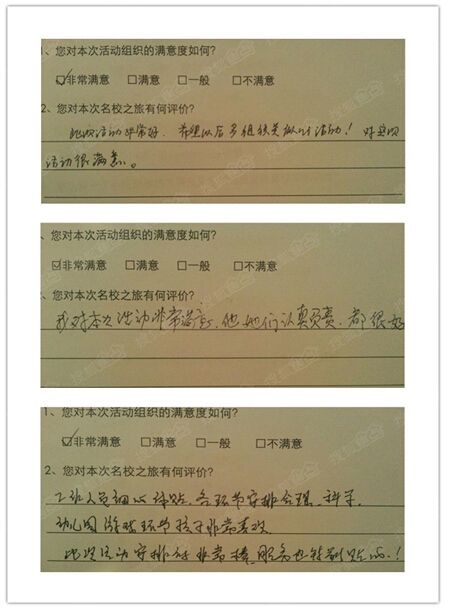 1、您对本次活动组织的满意度如何?
☑非常满意 □满意 □一般 □不满意
2、您对本次名校之旅有何评价?
此次活动非常好，希望以后多组织类似的活动！对这次
活动很满意。
、您对本次活动组织的满意度如何?
☑非常满意 □满意 □一般 □不满意
、您对本次名校之旅有何评价?
我对本次活动非常满意，他她们认真负责，都很好
1、您对本次活动组织的满意度如何?
☑非常满意 □满意 □一般 □不满意
2、您对本次名校之旅有何评价?
工作人员细心体贴，各环节安排合理、科学。
幼儿园游戏环节孩子非常喜欢
此次活动安排得非常棒，服务也特别贴心！